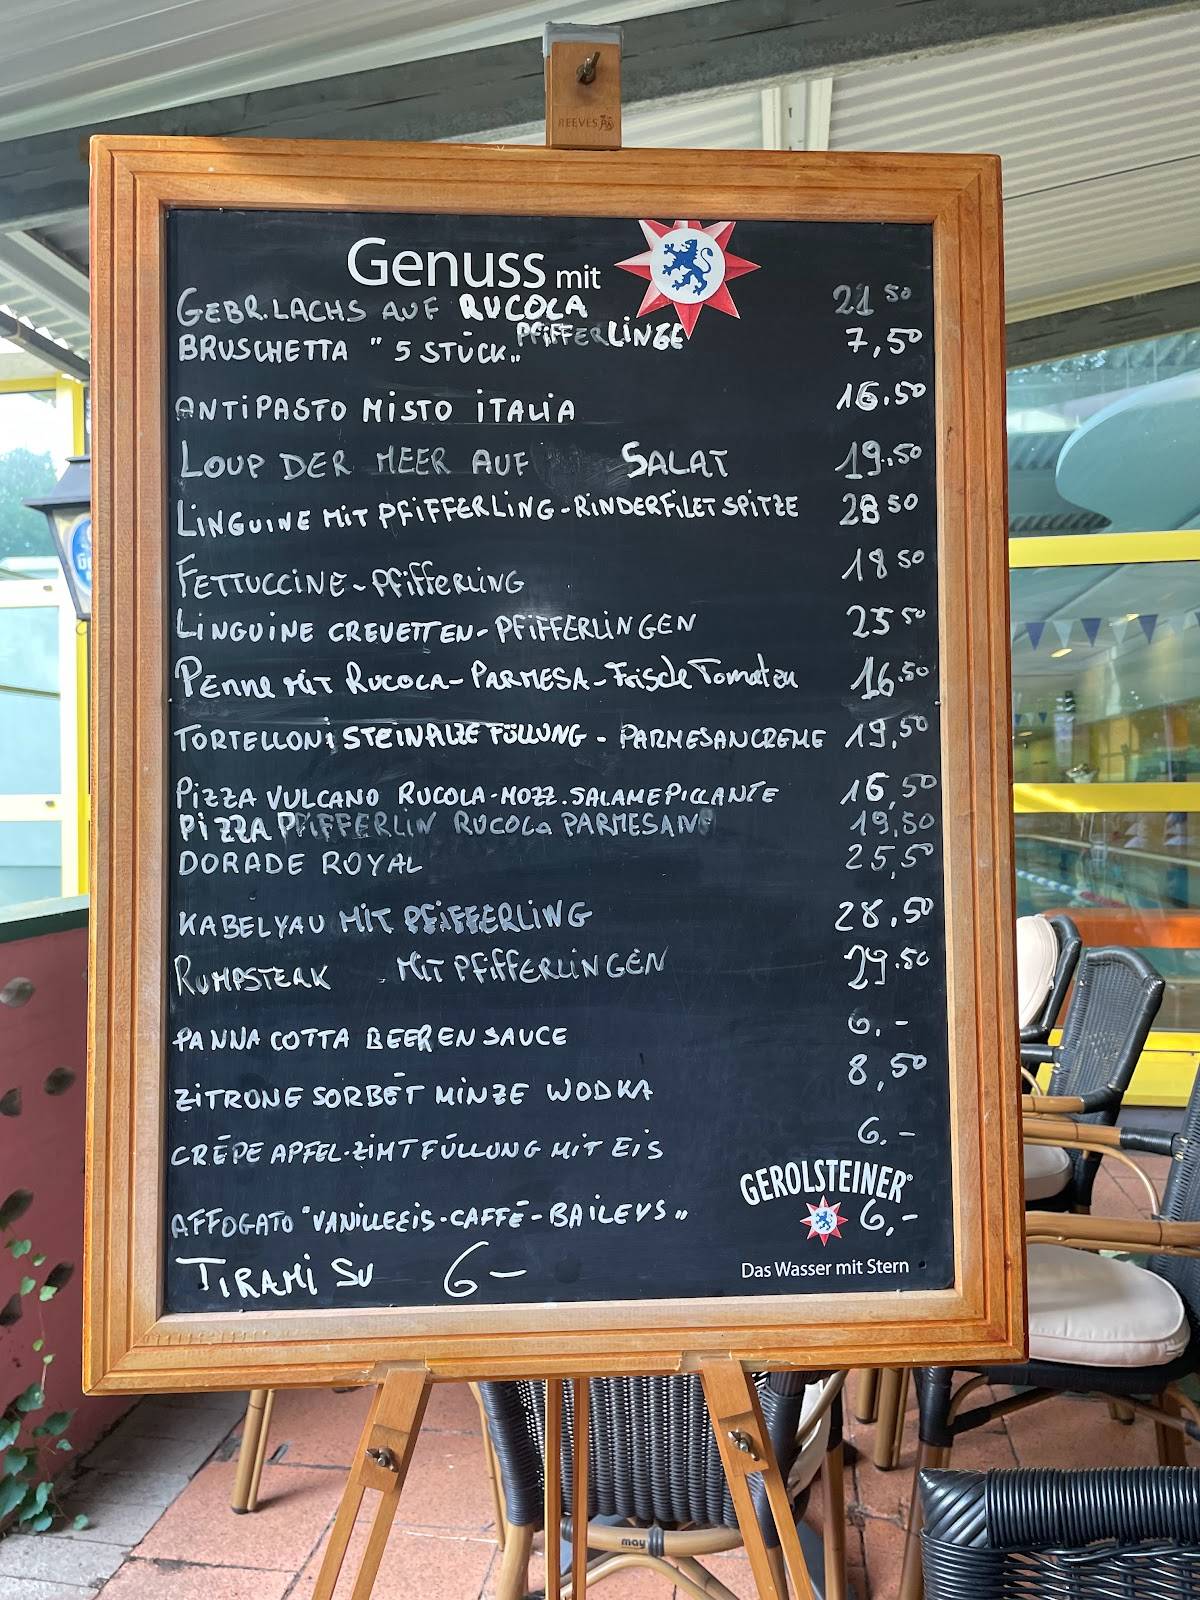 REEVES
Genuss mit
GEBR. LACHS AUF RUCOLA 21 50
PFIFFERLINGE
BRUSCHETTA " 5 STÜCK „ 7,50
ANTIPASTO MISTO ITALIA 16.50
LOUP DER MEER AUF SALAT 19.50
LINGUINE MIT PFIFFERLING-RINDERFILETSPITZE 28 50
FETTUCCINE-PFIFFERLING 18 50
LINGUINE CREVETTEN-PFIFFERLINGEN 23 50
PENNE MIT RUCOLA-PARMESA-Frische Tomaten 16.50
TORTELLONI STEINPILZE FÜLLUNG - PARMESANCREME 19,50
PIZZA VULCANO RUCOLA-MOZZ.SALAME PICCANTE 16,50
PIZZA PFIFFERLIN RUCOLA PARMESANO 19,50
DORADE ROYAL 25,50
KABELYAU MIT PFIFFERLING 28,50
RUMPSTEAK MIT PFIFFERLINGEN 29.50
PANNA COTTA BEEREN SAUCE 6.-
ZITRONE SORBET MINZE WODKA 8,50
CRÊPE APFEL-ZIMT FÜLLUNG MIT EIS 6.-
GEROLSTEINER®
AFFOGATO "VANILLEEIS-CAFFÉ-BAILEYS„ 6,-
TIRAMI SU 6-
Das Wasser mit Stern
may